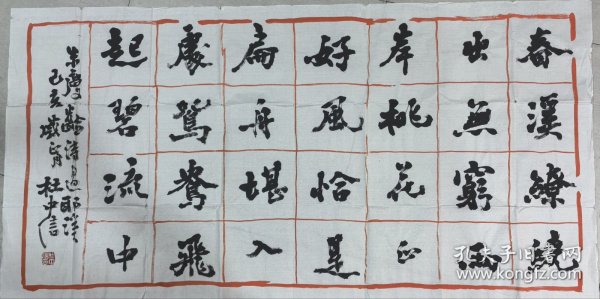 春溪繚繞
出無窮兩
岸桃花正
好風恰是
扁舟堪入
處鴛鴦飛
起碧流中
朱慶餘詩過耶溪
己亥歲 杜中信
孔夫子旧书网
www.kongfz.com